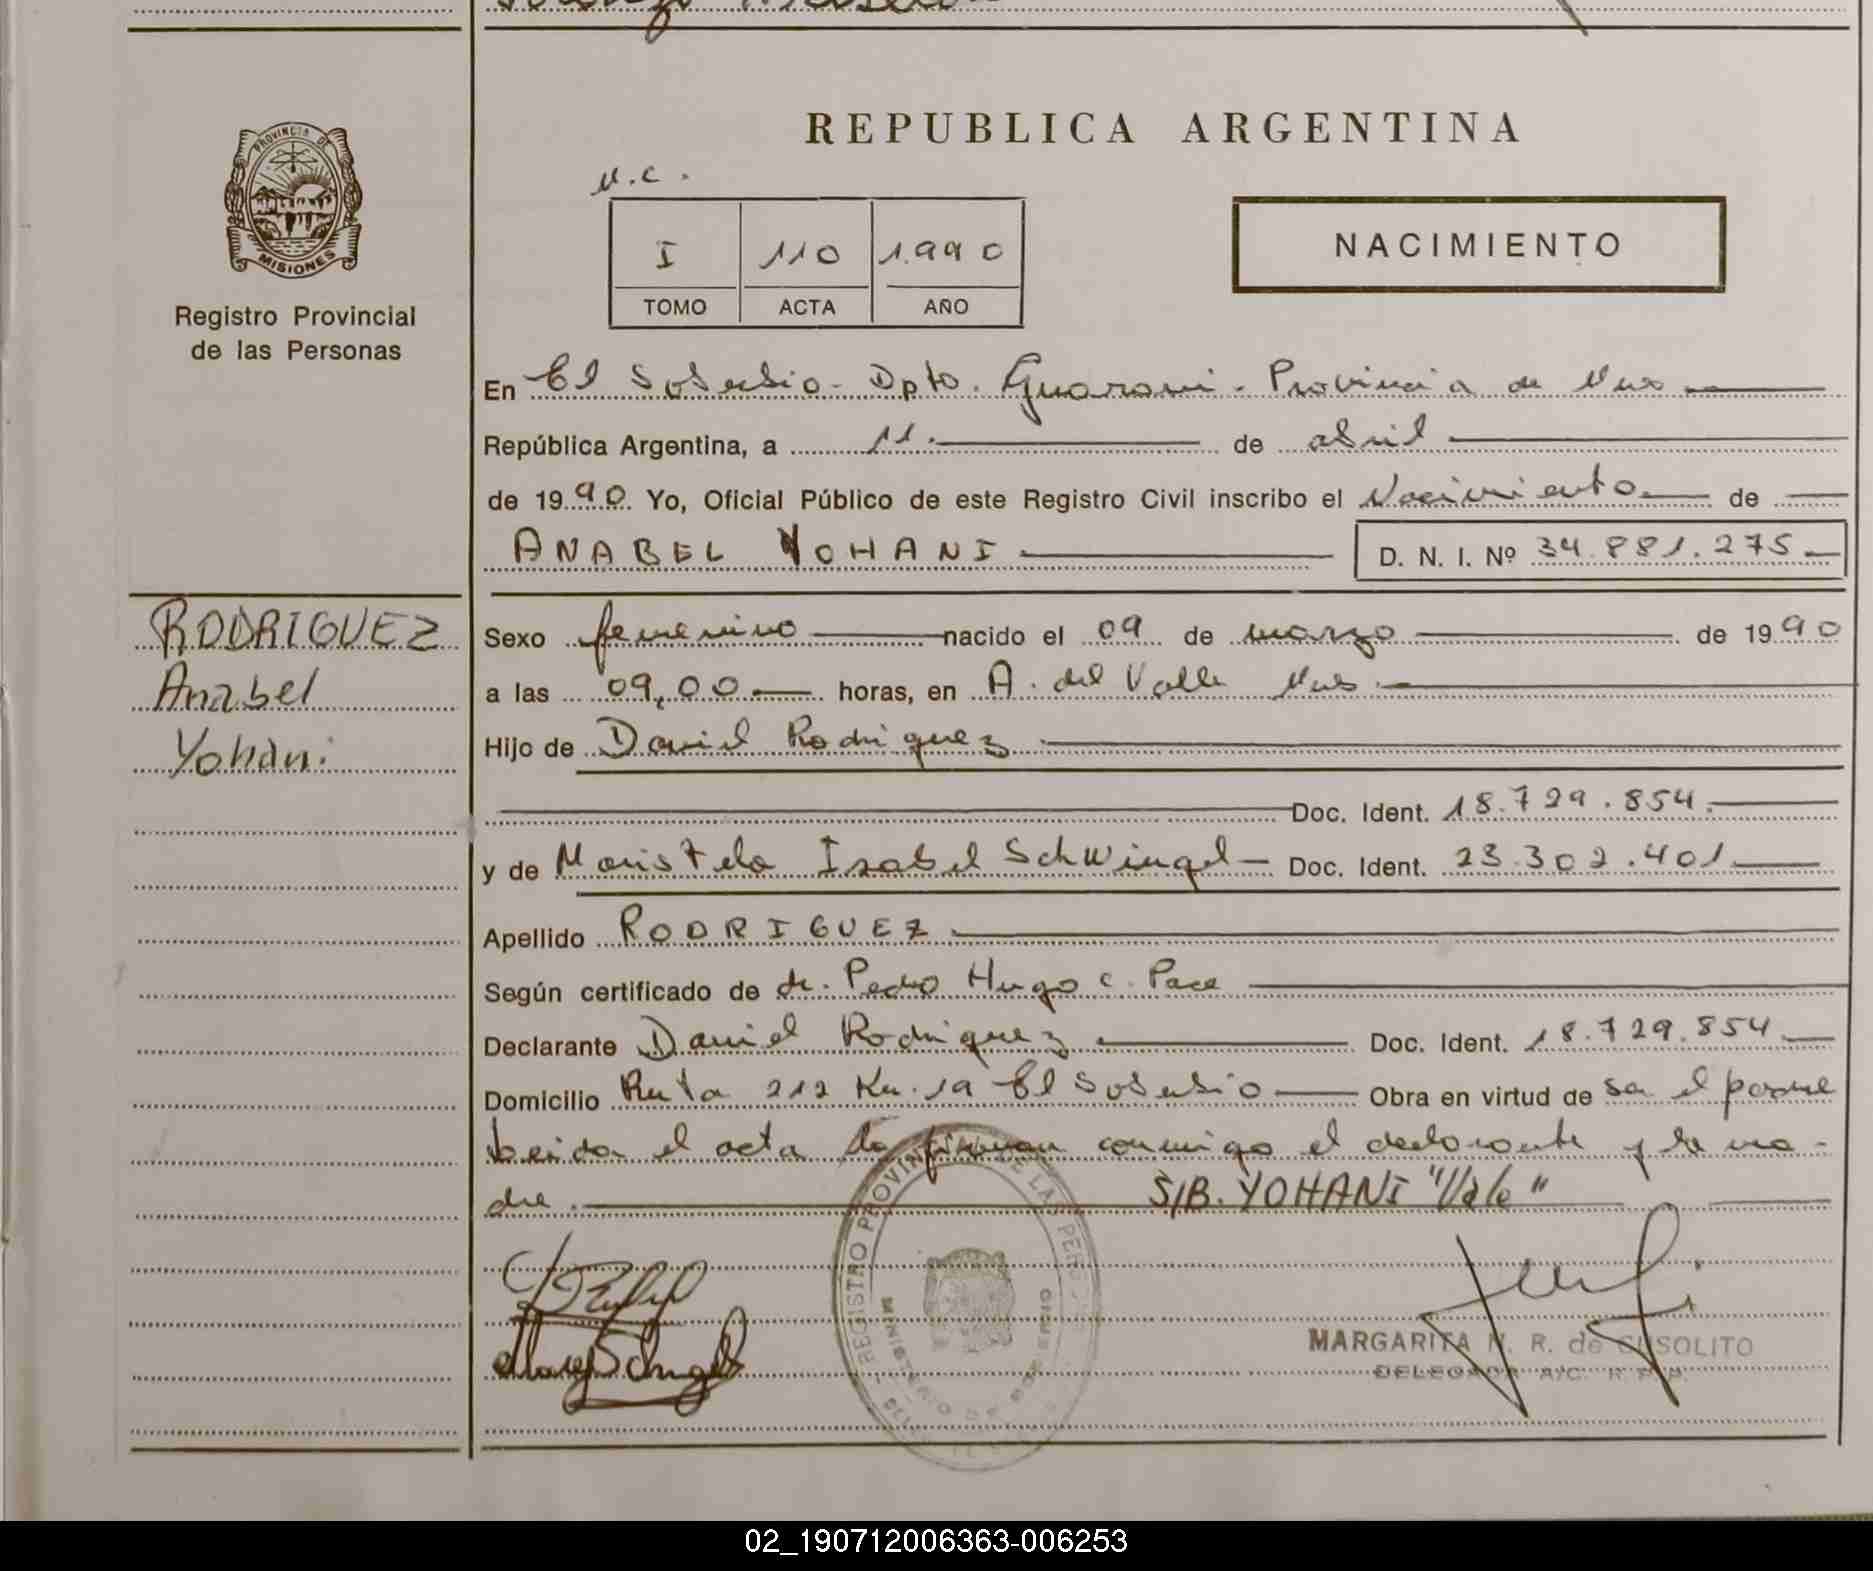 REPUBLICA ARGENTINA
PROVINCIA DE
MISIONES
Registro Provincial
de las Personas
N.C.
I 110 1.990
TOMO ACTA AÑO
NACIMIENTO
En El Soberbio - Dpto. Guarani - Provincia de Mnes
República Argentina, a 11. de abril
de 1990. Yo, Oficial Público de este Registro Civil inscribo el Nacimiento de
ANABEL YOHANI D. N. I. Nº 34.881.275
RODRIGUEZ
Anabel
Yohani
Sexo femenino nacido el 09 de marzo de 1990
a las 09,00 horas, en A. del Valle Mnes.
Hijo de Daniel Rodriguez
Doc. Ident. 18.729.854.
y de Maristela Isabel Schwingel Doc. Ident. 23.302.401
Apellido RODRIGUEZ
Según certificado de dr. Pedro Hugo C. Pace
Declarante Daniel Rodriguez Doc. Ident. 18.729.854
Domicilio Ruta 212 Km. 19 El Soberbio Obra en virtud de ser el padre
leida el acta la firman conmigo el declarante y la ma-
dre. S/B. YOHANI "Vale"
REGISTRO PROVINCIAL DE LAS PERSONAS
MINISTERIO DE GOBIERNO
MARGARITA N. R. de SUSOLITO
DELEGADA A/C. R. P. P.
02_190712006363-006253